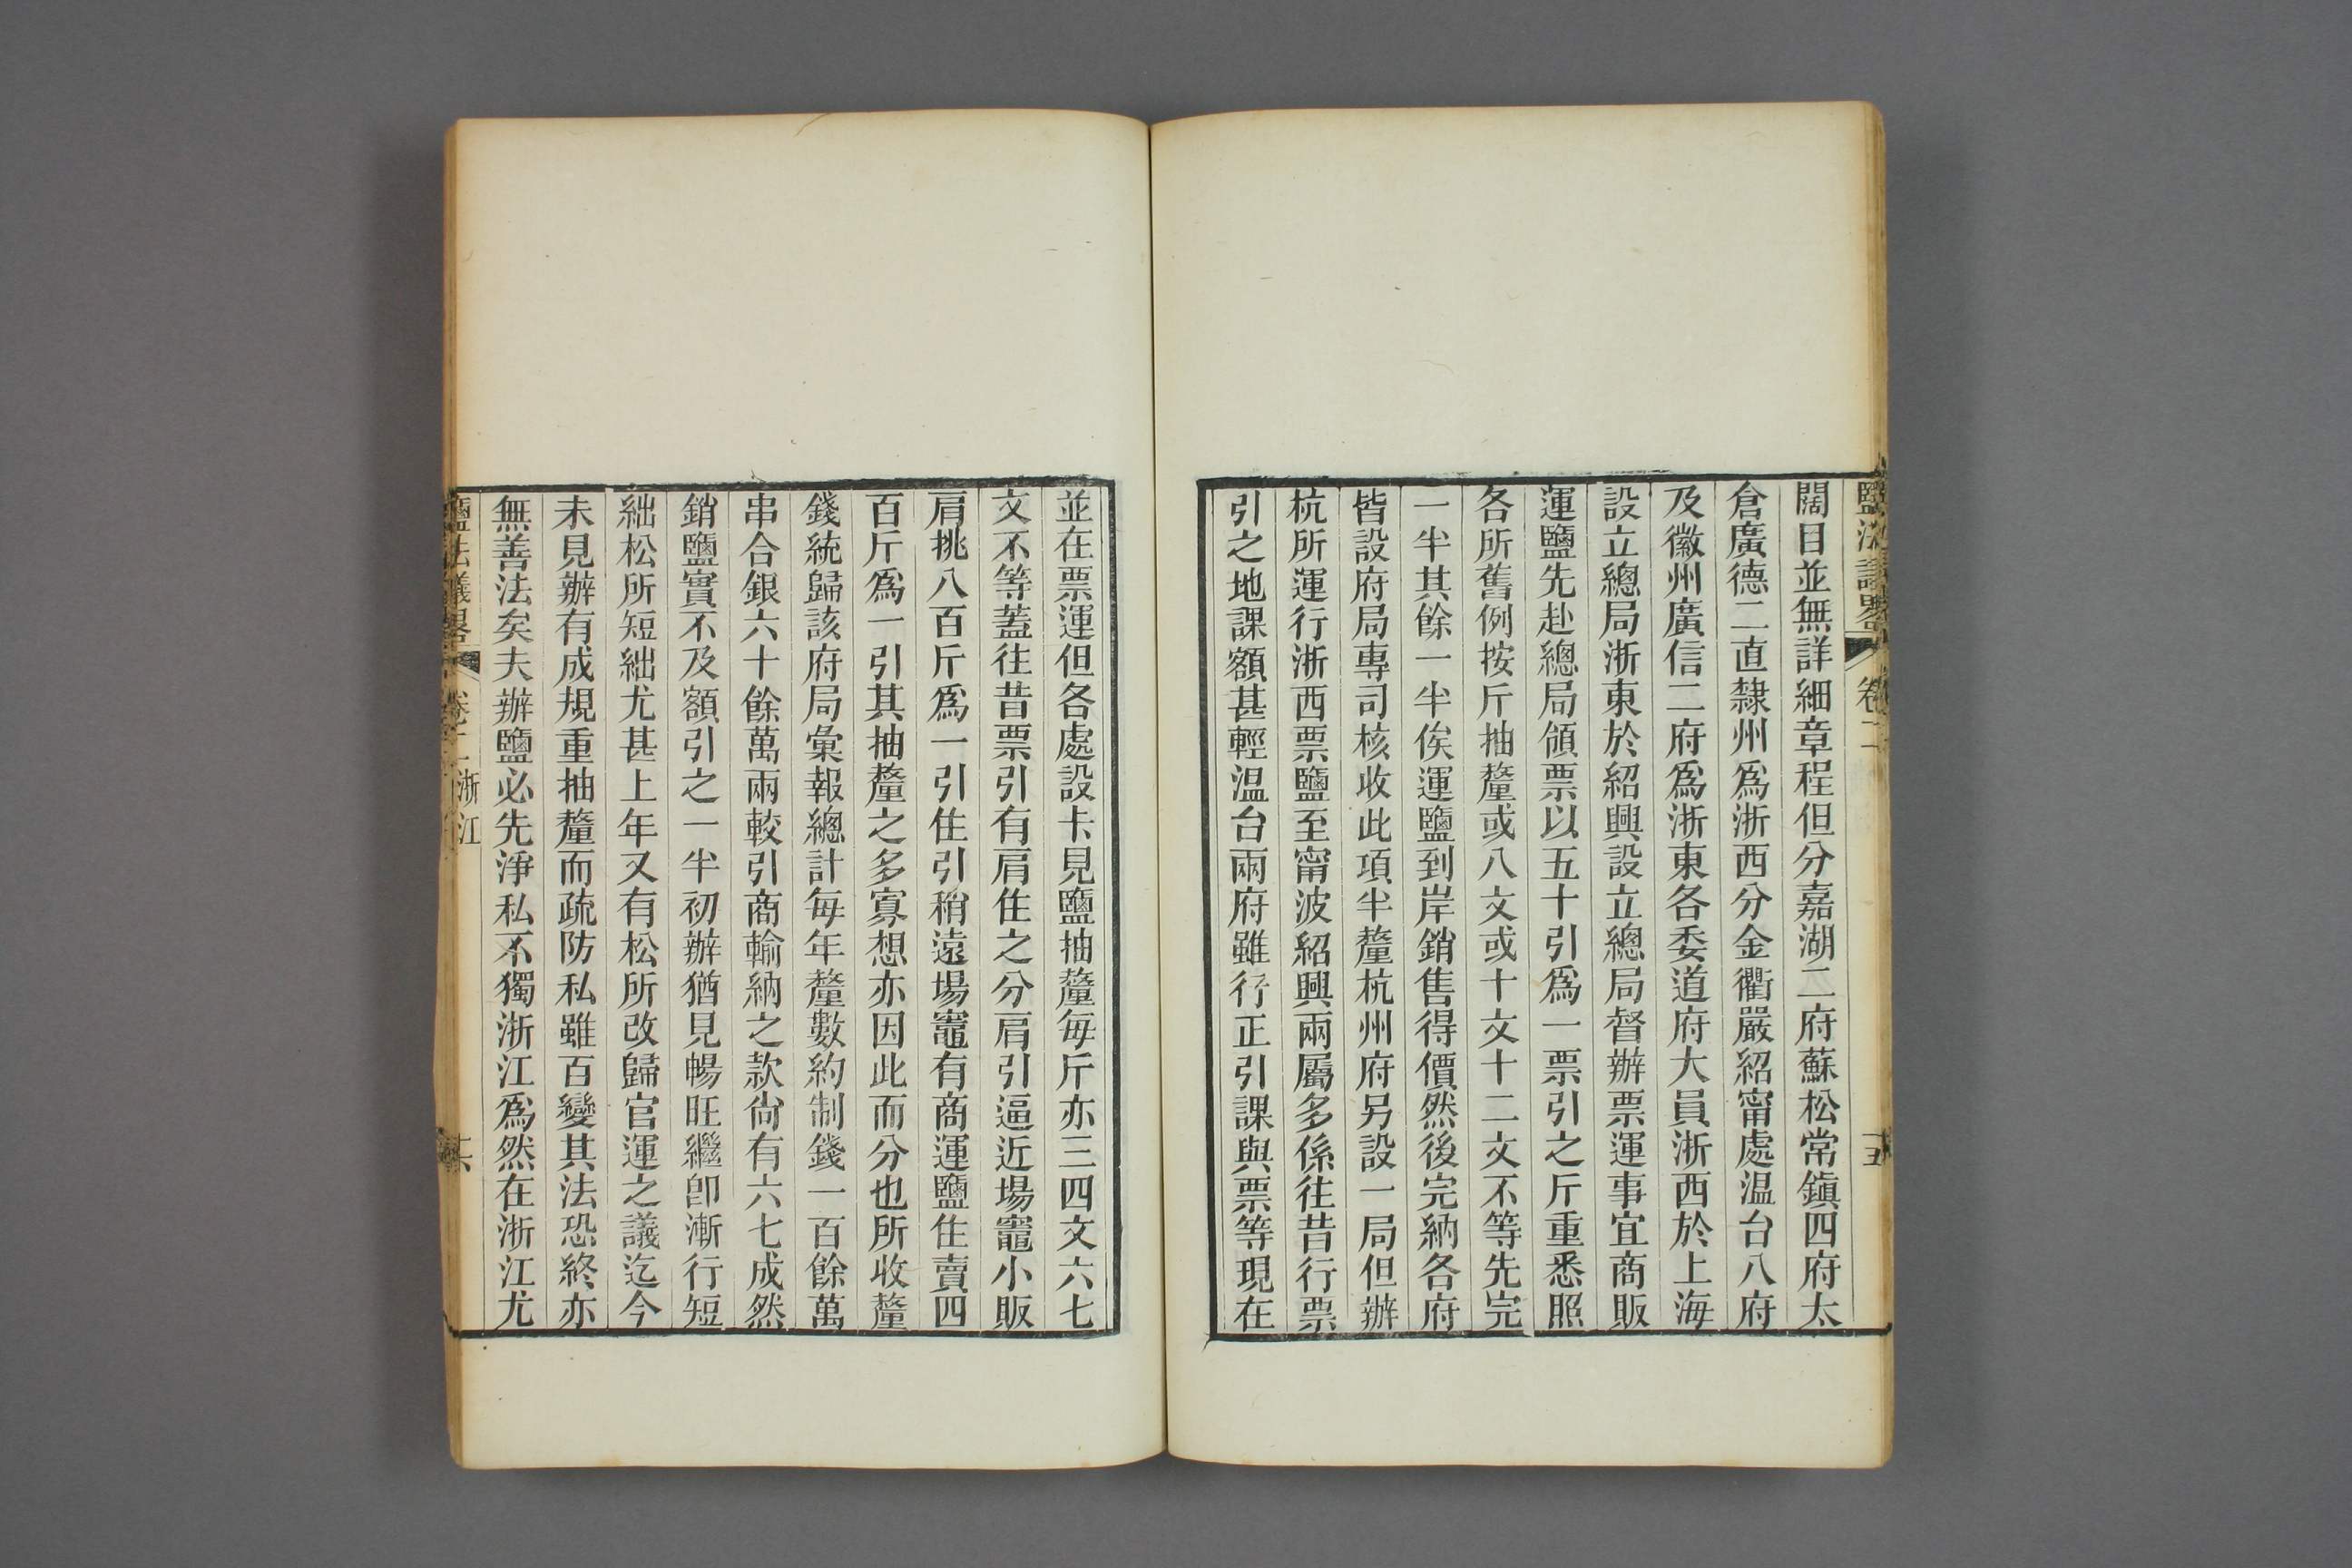 鹽法議畧 卷二 十五
闊目並無詳細章程但分嘉湖二府蘇松常鎭四府太
倉廣德二直隸州爲浙西分金衢嚴紹甯處温台八府
及徽州廣信二府爲浙東各委道府大員浙西於上海
設立總局浙東於紹興設立總局督辦票運事宜商販
運鹽先赴總局領票以五十引爲一票引之斤重悉照
各所舊例按斤抽釐或八文或十文十二文不等先完
一半其餘一半俟運鹽到岸銷售得價然後完納各府
皆設府局專司核收此項半釐杭州府另設一局但辦
杭所運行浙西票鹽至甯波紹興兩屬多係往昔行票
引之地課額甚輕温台兩府雖行正引課與票等現在
並在票運但各處設卡見鹽抽釐每斤亦三四文六七
文不等蓋往昔票引有肩住之分肩引逼近場竈小販
肩挑八百斤爲一引住引稍遠場竈有商運鹽住賣四
百斤爲一引其抽釐之多寡想亦因此而分也所收釐
錢統歸該府局彙報總計每年釐數約制錢一百餘萬
串合銀六十餘萬兩較引商輸納之款尙有六七成然
銷鹽實不及額引之一半初辦猶見暢旺繼卽漸行短
絀松所短絀尤甚上年又有松所改歸官運之議迄今
未見辦有成規重抽釐而疏防私雖百變其法恐終亦
無善法矣夫辦鹽必先淨私不獨浙江爲然在浙江尤
鹽法議畧 卷二 浙江 十六